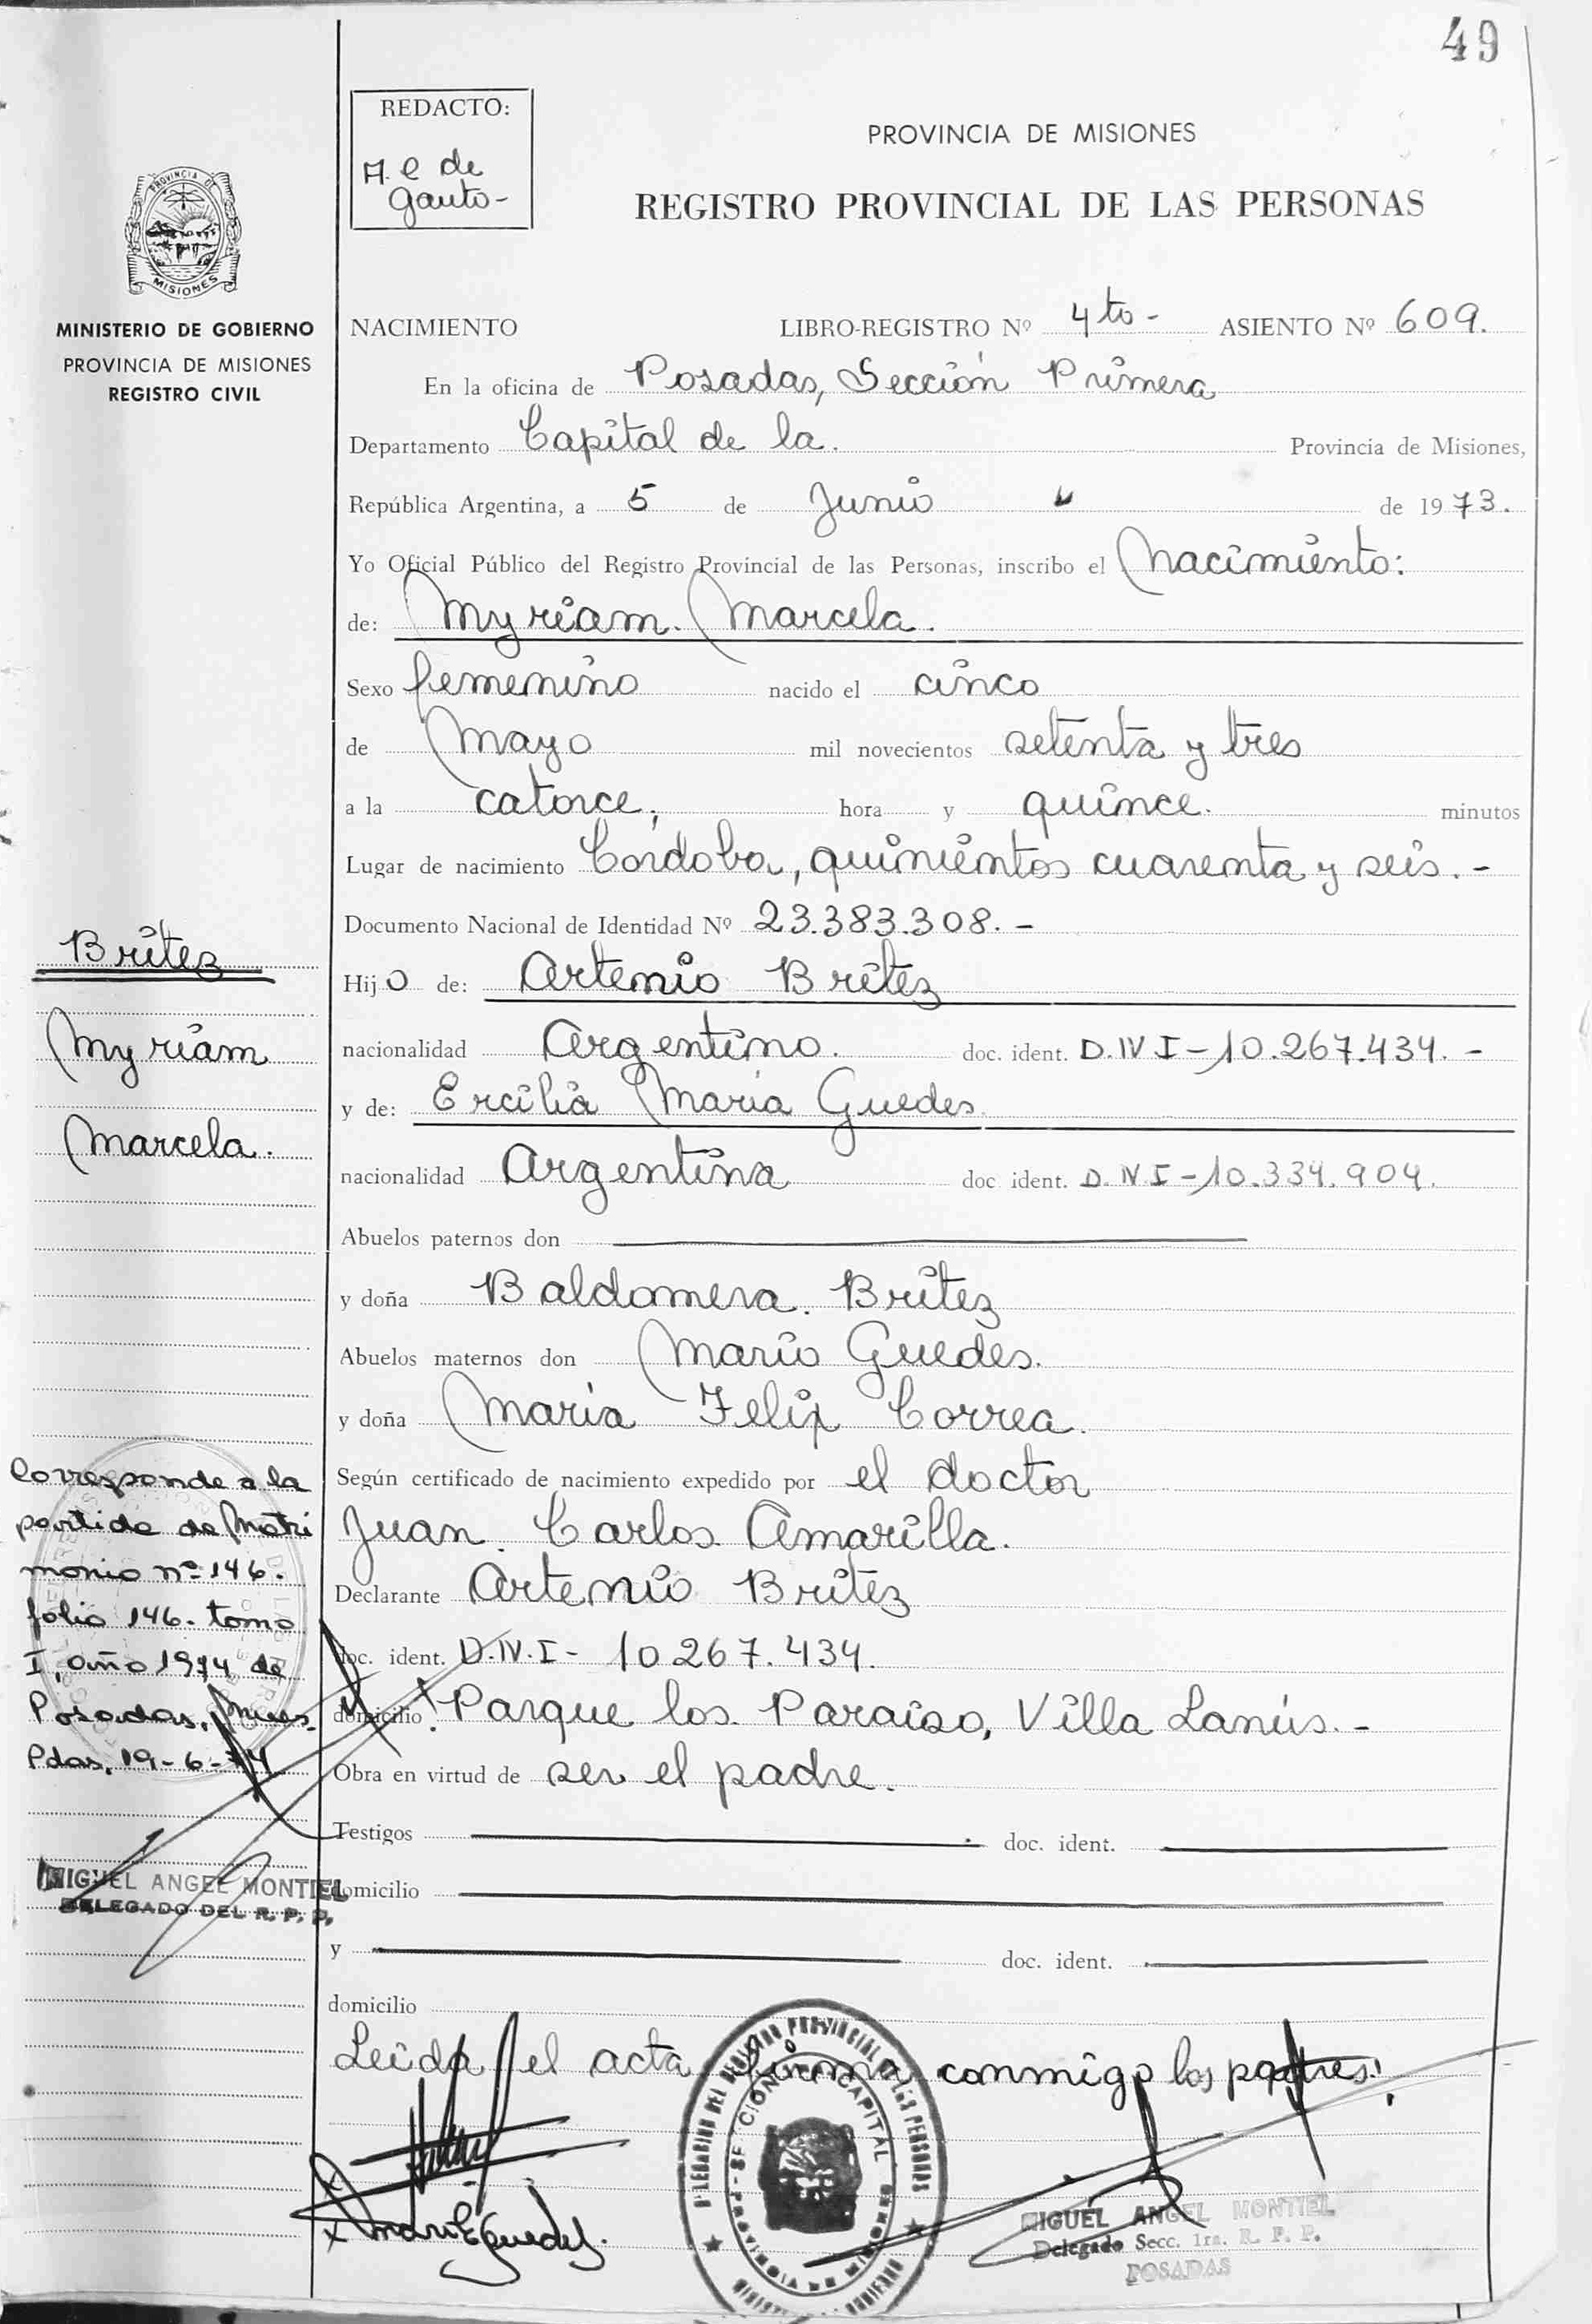 49
REDACTO:
A. e de
Gauto-
PROVINCIA DE MISIONES
REGISTRO PROVINCIAL DE LAS PERSONAS
PROVINCIA DE
MISIONES
MINISTERIO DE GOBIERNO
PROVINCIA DE MISIONES
REGISTRO CIVIL
NACIMIENTO LIBRO-REGISTRO Nº 4to- ASIENTO Nº 609.
En la oficina de Posadas, Sección Primera
Departamento Capital de la. Provincia de Misiones,
República Argentina, a 5 de Junio de 1973.
Yo Oficial Público del Registro Provincial de las Personas, inscribo el Nacimiento:
de: Myriam. Marcela.
Sexo femenino nacido el cinco
de Mayo mil novecientos setenta y tres
a la catorce, hora y quince. minutos
Lugar de nacimiento Córdoba, quinientos cuarenta y seis.-
Documento Nacional de Identidad Nº 23.383.308.-
Hijo de: Artemio Britez
nacionalidad Argentino. doc. ident. D.N I-10.267.434.-
y de: Ercilia Maria Guedes.
nacionalidad Argentina doc ident. D.N.I-10.334.904.
Abuelos paternos don
y doña Baldomera. Britez
Abuelos maternos don Mario Guedes.
y doña María Felix Correa.
Según certificado de nacimiento expedido por el doctor
Juan. Carlos Amarilla.
Declarante Artemio Britez
doc. ident. D.N.I- 10.267.434.
domicilio: Parque los Paraiso, Villa Lanús.-
Obra en virtud de ser el padre.
Testigos doc. ident.
domicilio
y doc. ident.
domicilio
Leida el acta firma conmigo los padres:
Britez
Myriam
Marcela.
Corresponde a la
partida de Matri
monio nº 146.
folio 146. tomo
I, año 1974 de
Posadas, Mnes.
Pdas, 19-6-74
MIGUEL ANGEL MONTIEL
DELEGADO DEL R. P. P.
DELEGACION DEL REGISTRO PROVINCIAL DE LAS PERSONAS
SECCION 1ra CAPITAL
PROVINCIA DE MISIONES
MIGUEL ANGEL MONTIEL
Delegado Secc. 1ra. R. P. P.
POSADAS